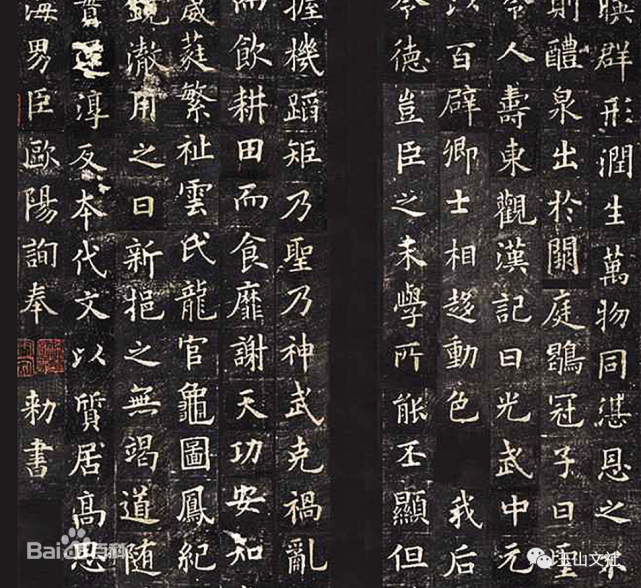 暎群形潤生萬物同湛恩之不
則醴泉出於闕庭鶡冠子曰聖
令人壽東觀漢記曰光武中元
以百辟卿士相趍動色 我后
令德豈臣之末學所能丕顯但
握機蹈矩乃聖乃神武克禍亂
而飲耕田而食靡謝天功安知
葳蕤繁祉雲氏龍官龜圖鳳紀
鏡澈用之日新挹之無竭道隨
實還淳反夲代文以質居高思
海男臣歐陽詢奉 勑書
Bai百科